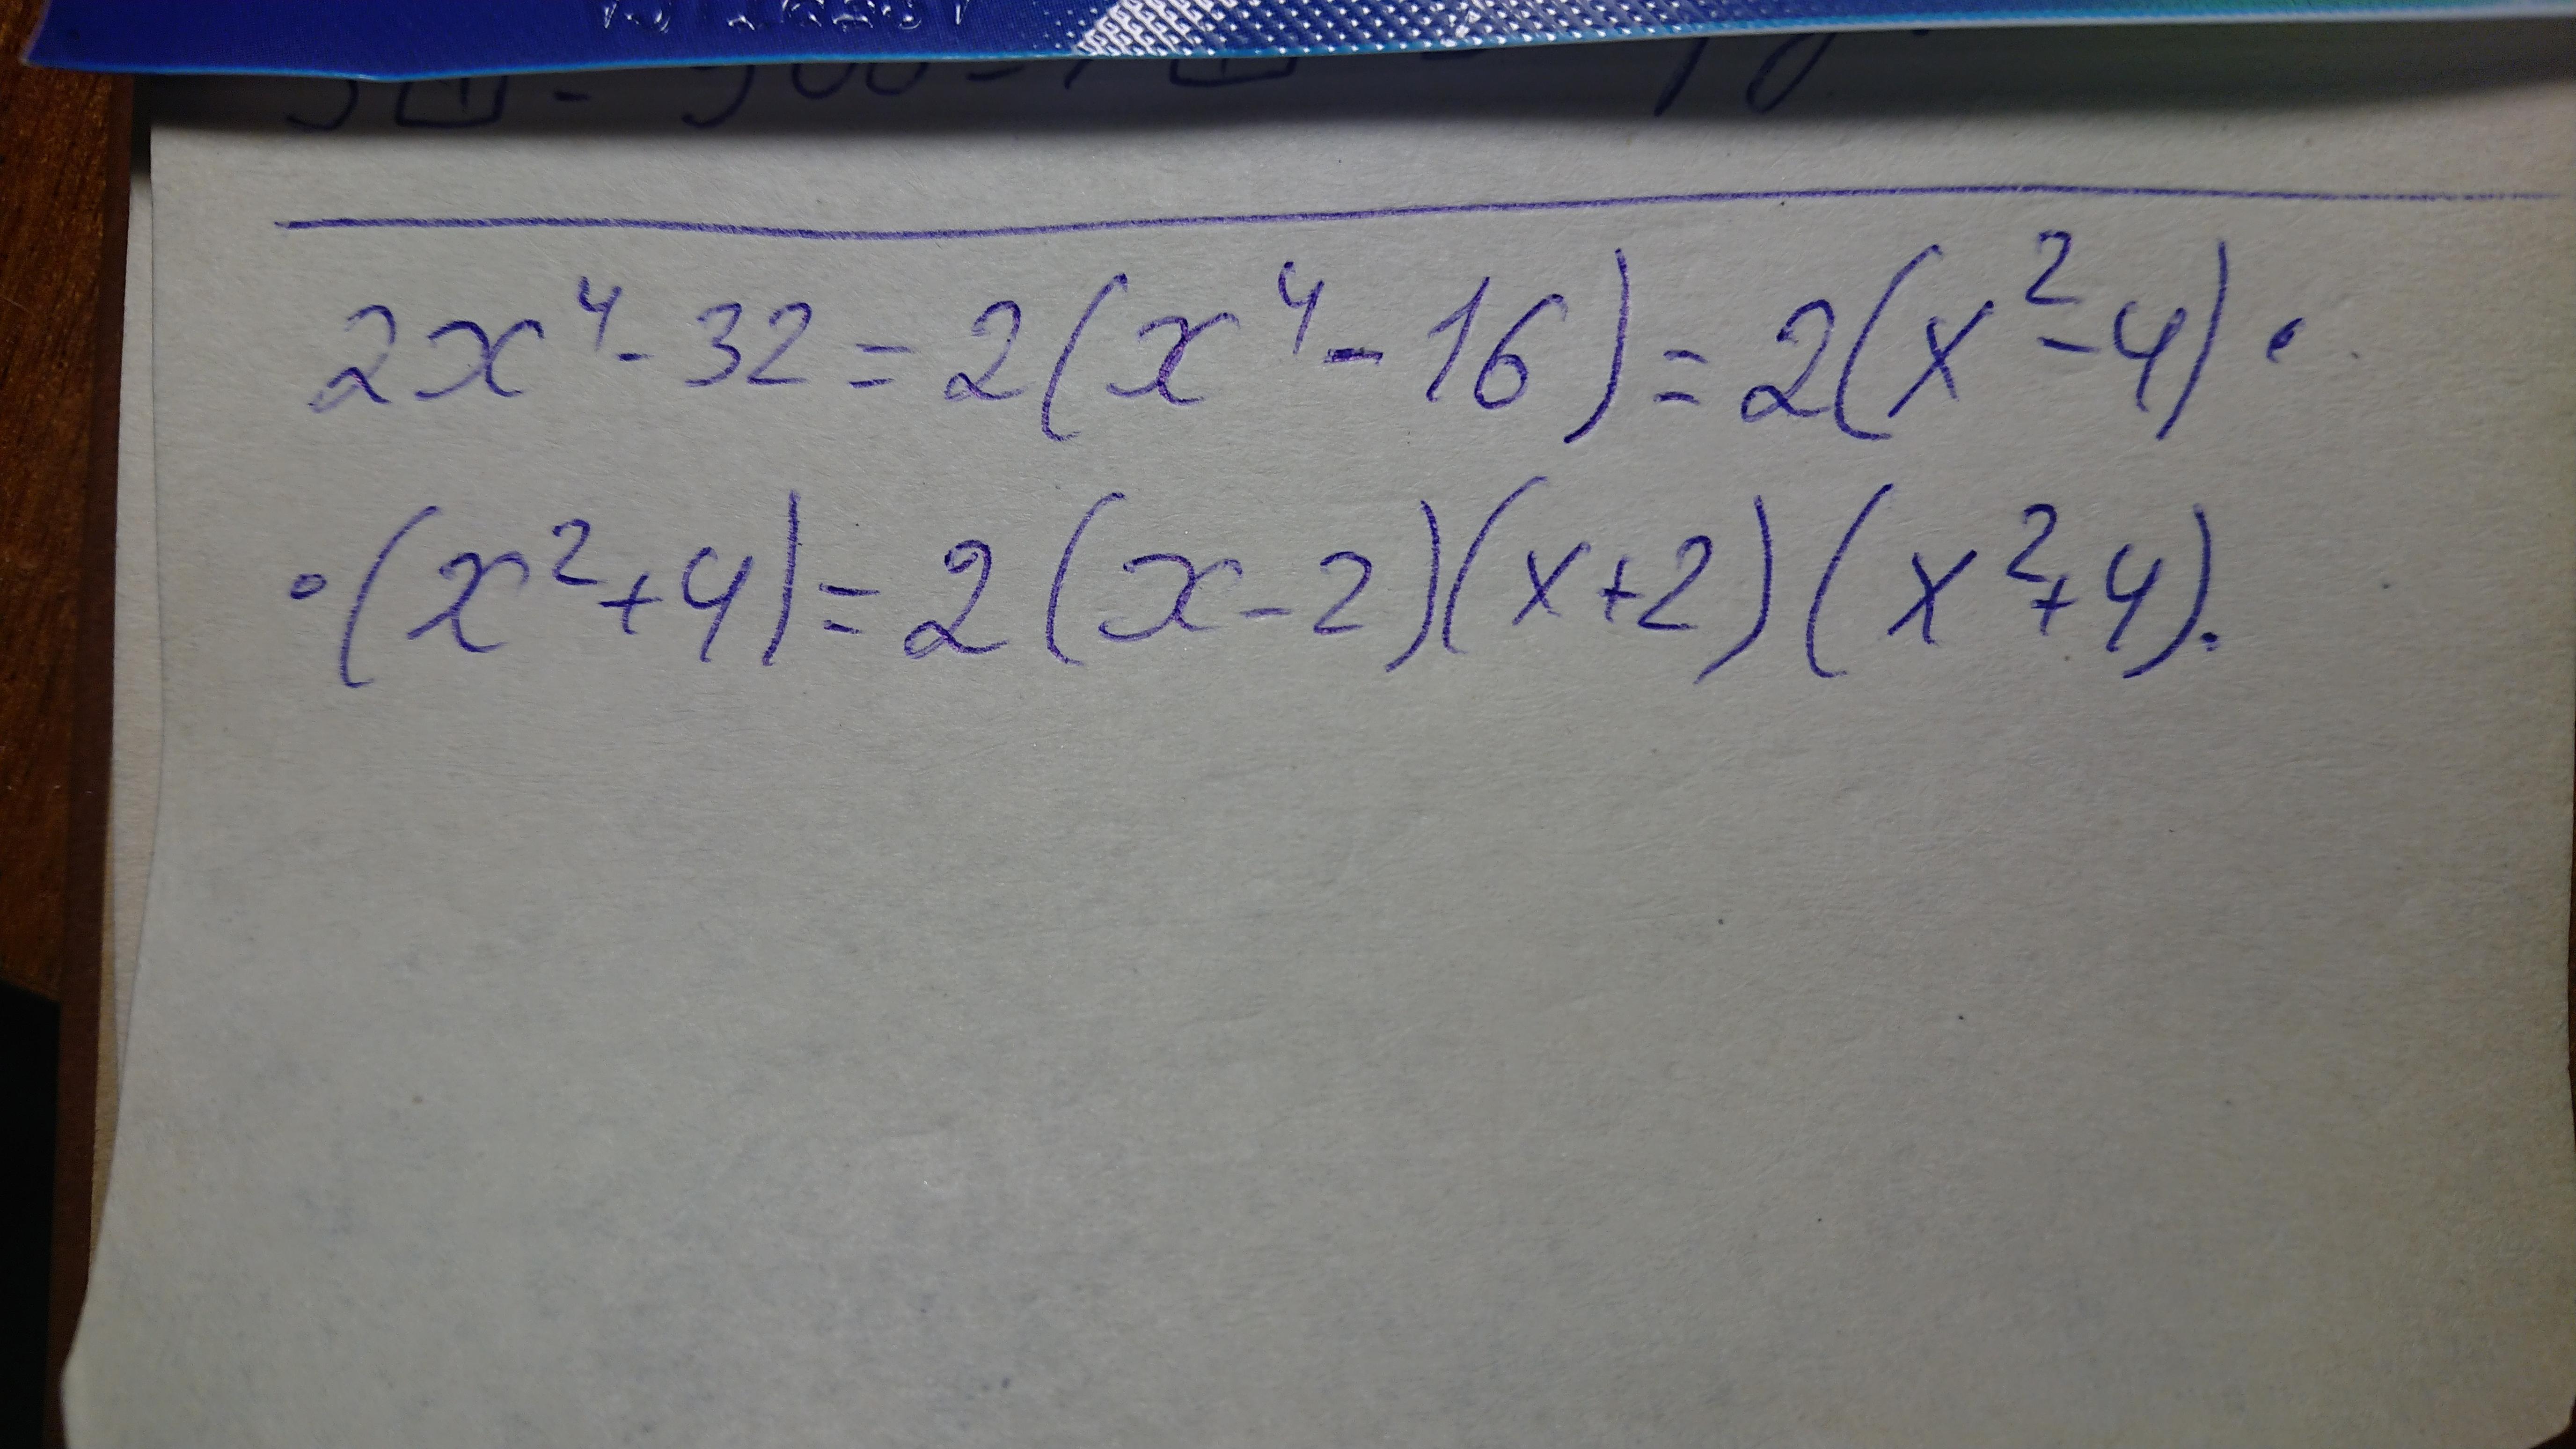 2x⁴ - 32 = 2(x⁴ - 16) = 2(x² - 4) ·
· (x² + 4) = 2(x - 2)(x + 2)(x² + 4).